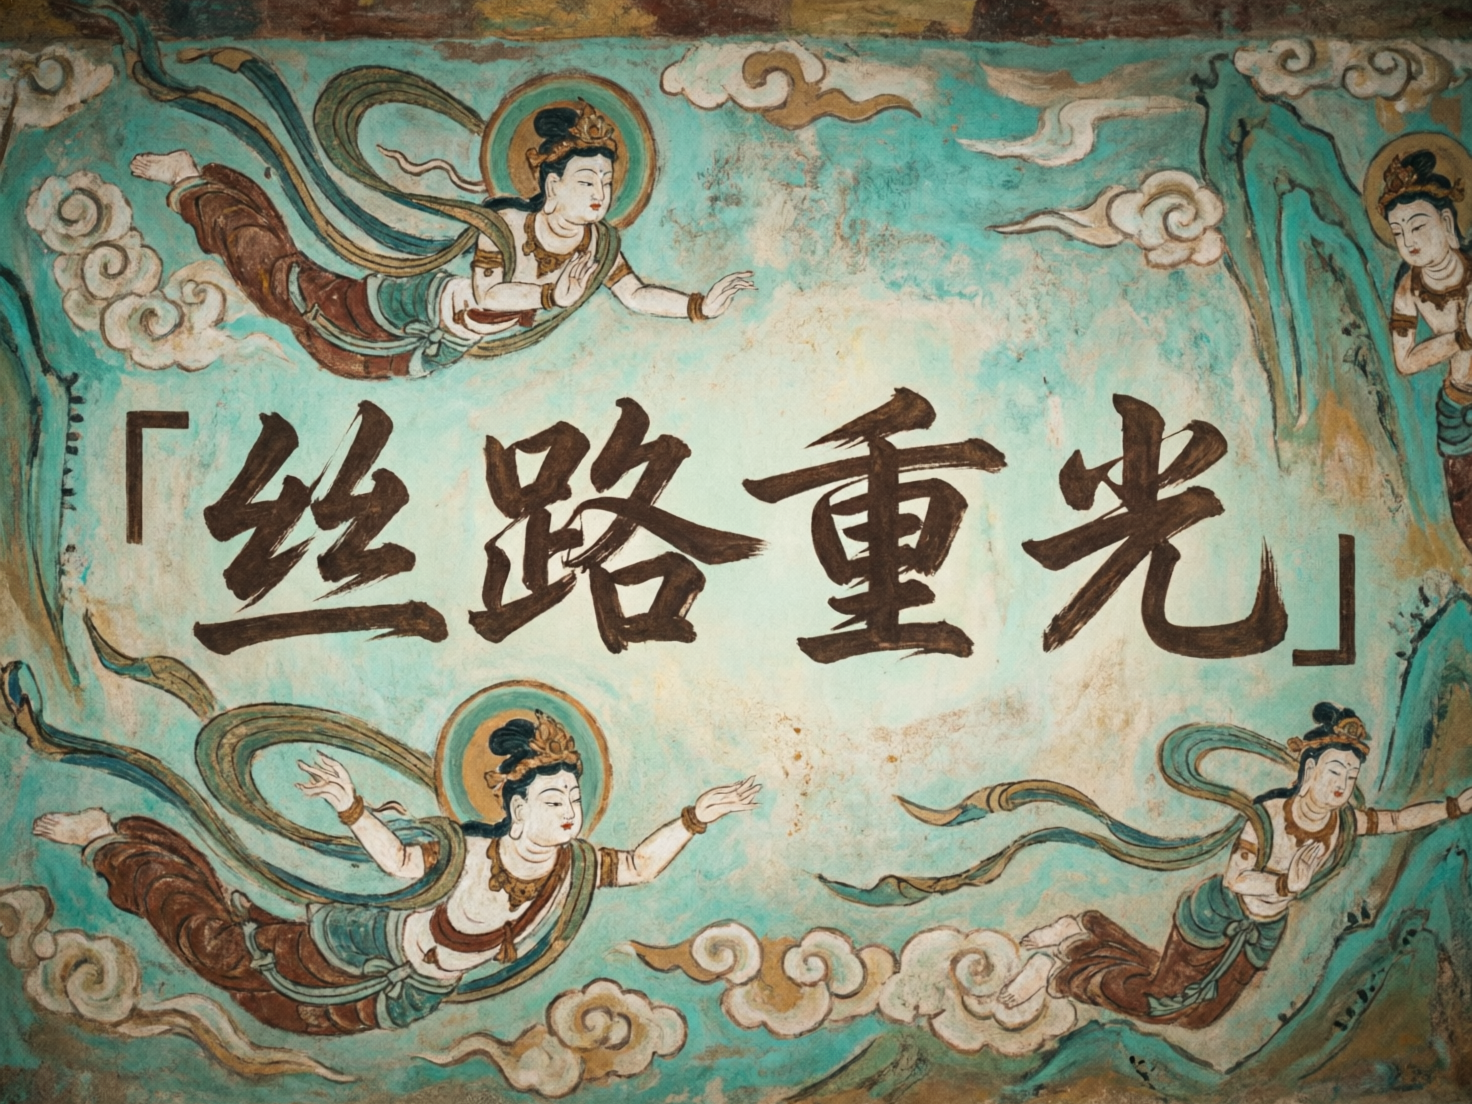 「丝路重光」